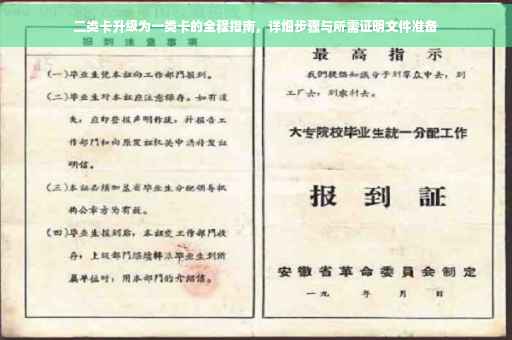 二类卡升级为一类卡的全程指南，详细步骤与所需证明文件准备
报到注意事项
(一)毕业生凭本证向工作部门报到。
(二)毕业生对本证应注意保存。如有遗
失，应即登报声明作废，并报告工
作部门和向原发证机关申请补发证
明信。
(三)本证必须加盖省毕业生分配领导机
构公章方为有效。
(四)毕业生报到后，本证交工作部门收
存；上级部门继续转派毕业生到所
属单位时，用本部门的介绍信。
最高指示
我们提倡知识分子到群众中去，到
工厂去，到农村去。
大专院校毕业生统一分配工作
报到证
安徽省革命委员会制定
一九 年 月 日